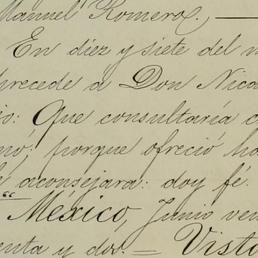 Manuel Romero.,
En diez y siete del m
precede a Don Nica
io: Que consultaría c
mó, porque ofreció ha
aconsejara: doy fé.
"" México, Junio ven
enta y dos. = Visto